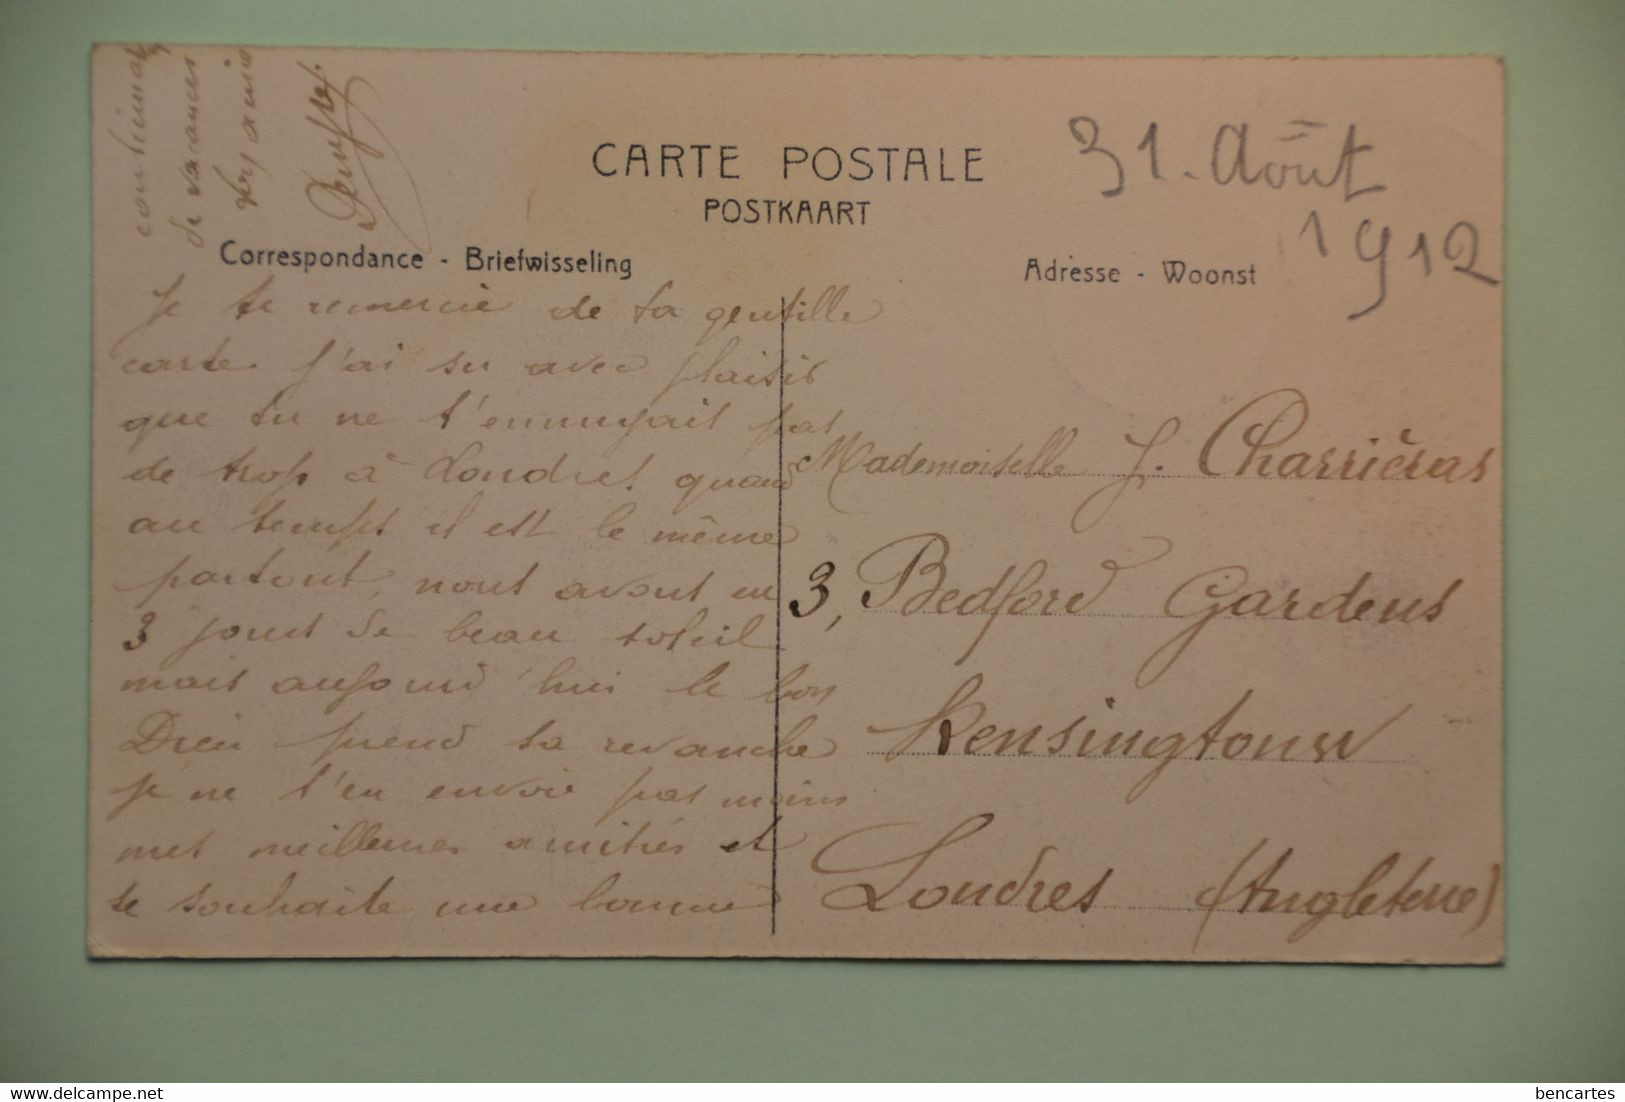 CARTE POSTALE
POSTKAART
Correspondance - Briefwisseling
Adresse - Woonst
31. Août
1912
Je te remercie de ta gentille
carte. J'ai su avec plaisir
que tu ne t'ennuyait pas
de trop à Londres quand
au temps il est le même
partout, nous avons eu
3 jours de beau soleil
mais aujourd'hui le bon
Dieu prend sa revanche
je ne t'en envoie pas moins
mes meilleures amitiés et
te souhaite une bonne
continuat
de vacances
amie
Mademoiselle J. Charrièras
3, Bedford Gardens
Kensington W
Londres (Angleterre)
delcampe.net
bencartes